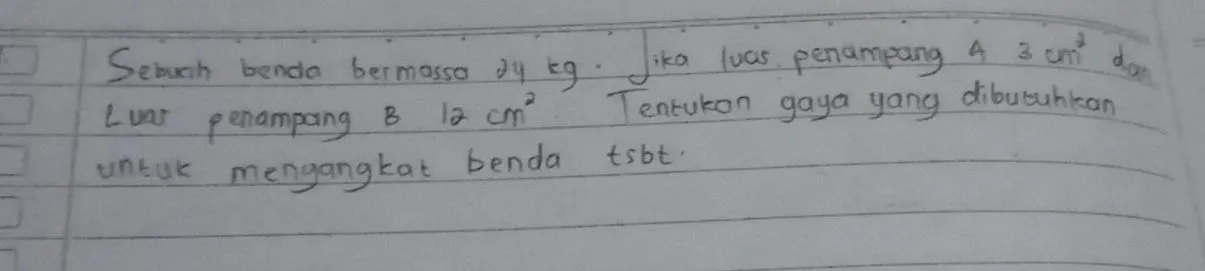 Sebuah benda bermassa 24 kg. Jika luas penampang A 3 cm² dan
Luas penampang B 12 cm². Tentukan gaya yang dibutuhkan
untuk mengangkat benda tsbt.